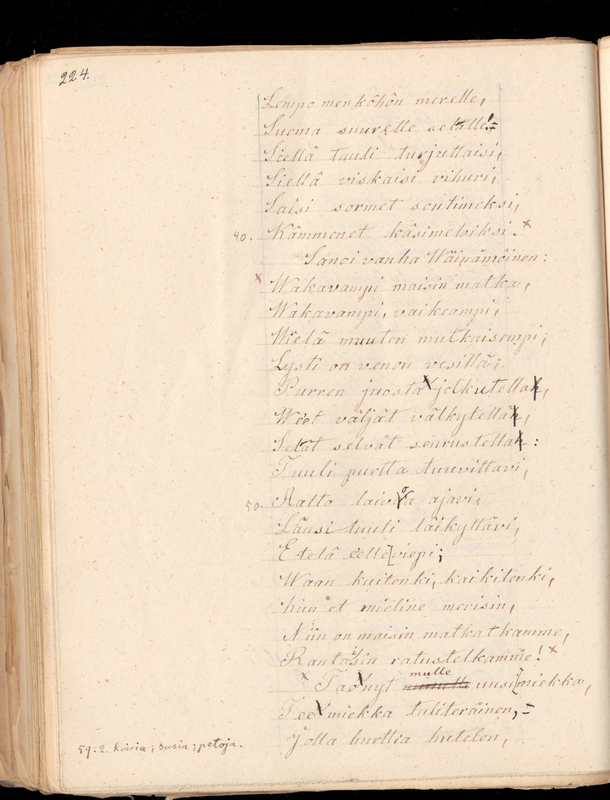 224.
Lempo menköhön merelle,
Surma suurelle selälle!=
Siellä tuuli turjuttaisi,
Siellä viskaisi vihuri,
Saisi sormet soutimeksi,
40. Kämmenet käsimeloiksi.
Sanoi vanha Wäinämöinen:
Wakavampi maisin matka,
Wakavampi, vaikeampi,
Wielä muuten mutkaisempi;
Lysti on venon vesillä;
Purren juosta jolkutella,
Weet väljät välkytellä,
Selät selvät seurustella:
Tuuli purtta tuuvittavi,
50. Aalto laivoa ajavi,
Länsi tuuli läikyttävi,
Etelä eellevievi;
Waan kuitenki, kaikitenki,
Kun et mieline merisin,
Niin on maisin matkatkamme,
Rantaisin ratustelkamme!
Tao nyt mulle uusi miekka,
Tee miekka tuliteräinen,=
Jolla hurttia hutelen,
59: 2. koiria; susia; petoja.